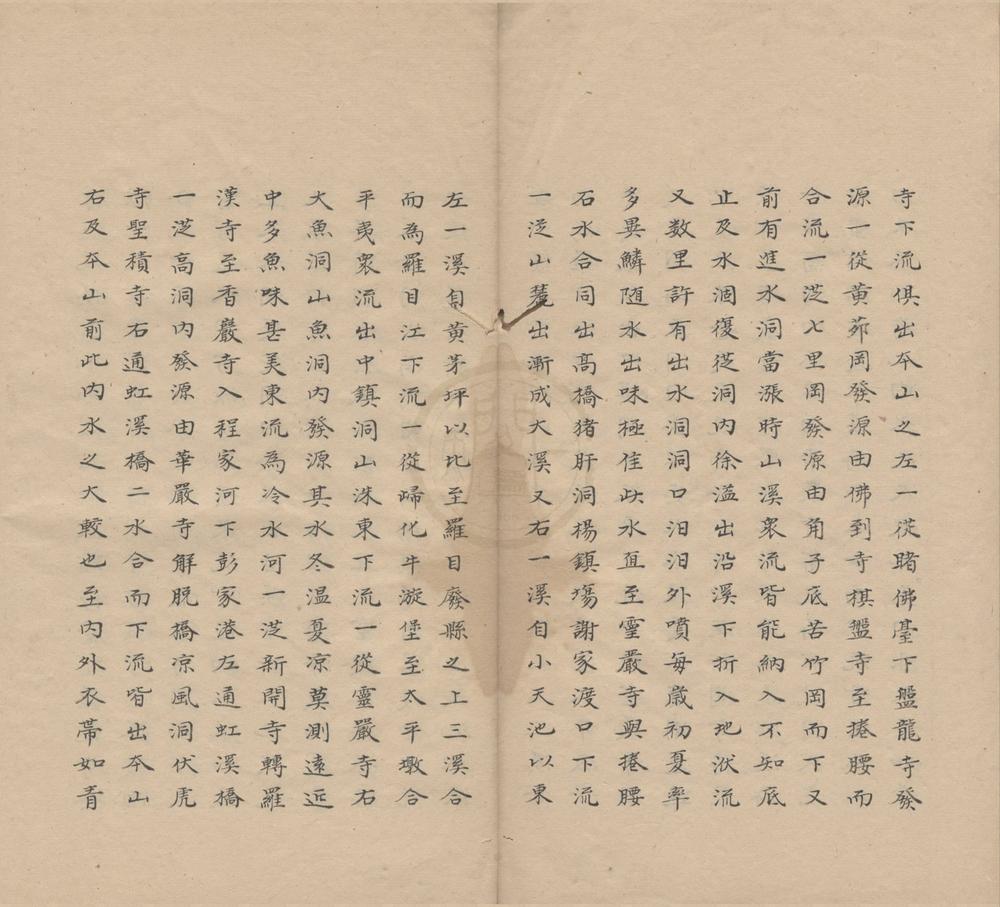 寺下流俱出夲山之左一從睹佛臺下盤龍寺發
源一從黄茆岡發源由佛到寺棋盤寺至捲腰而
合流一從七里岡發源由角子底苦竹岡而下又
前有進水洞當漲時山溪衆流皆能納入不知底
止及水涸復從洞内徐溢出沿溪下折入地洑流
又数里許有出水洞洞口汩汩外噴每歲初夏率
多異鱗随水出味極佳此水直至靈嚴寺與捲腰
石水合同出高橋猪肝洞楊鎮塲謝家渡口下流
一從山麓出漸成大溪又右一溪自小天池以東
左一溪自黄茅坪以北至羅目廢縣之上三溪合
而為羅目江下流一從歸化牛漩堡至太平墩合
平夷衆流出中鎮洞山洙東下流一從靈嚴寺右
大魚洞山魚洞内發源其水冬温夏凉莫測遠近
中多魚味甚美東流為冷水河一從新開寺轉羅
漢寺至香嚴寺入程家河下彭家港左通虹溪橋
一從高洞内發源由華嚴寺解脱橋凉風洞伏虎
寺聖積寺右通虹溪橋二水合而下流皆出夲山
右及夲山前此内水之大較也至内外衣帶如青